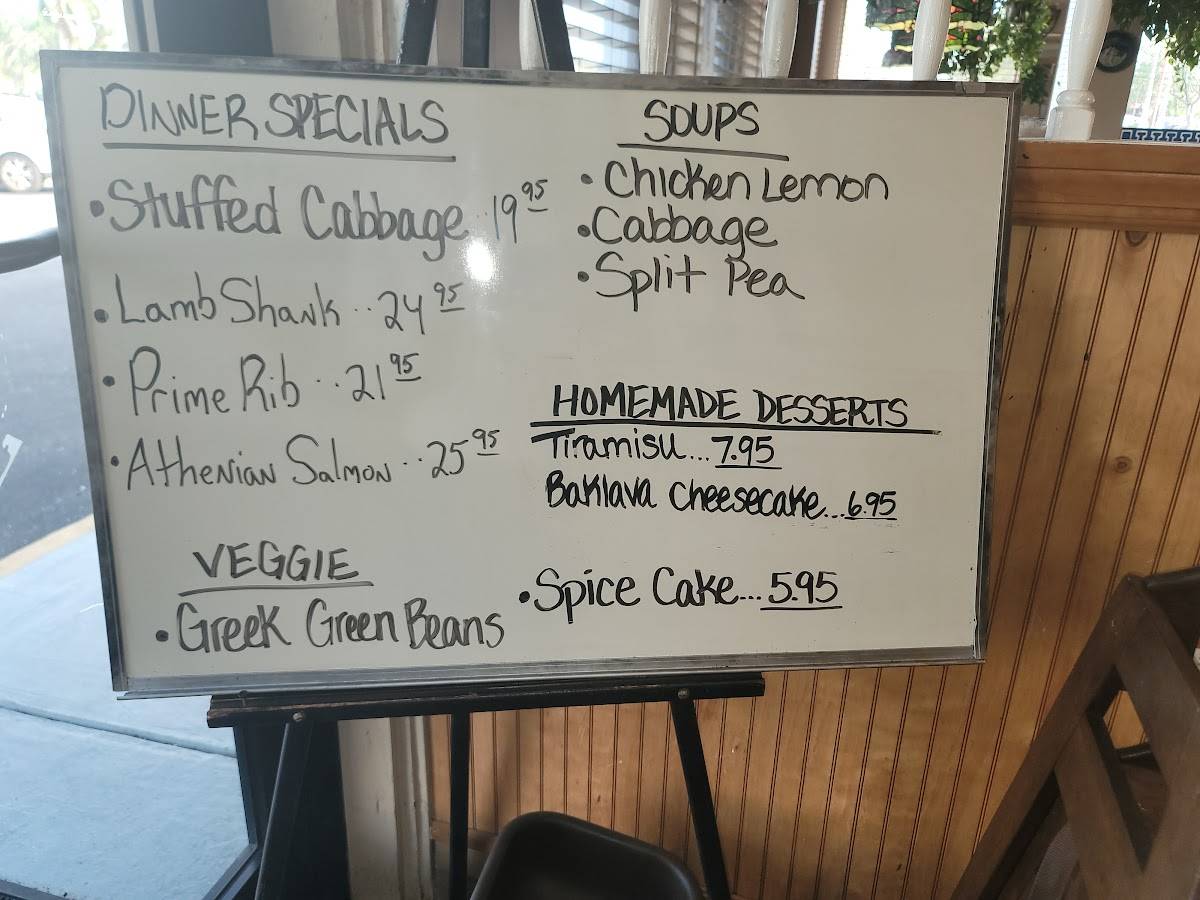 DINNER SPECIALS
• Stuffed Cabbage.. 19 95
• Lamb Shank .. 24 95
• Prime Rib .. 21 95
• Athenian Salmon .. 25 95
VEGGIE
• Greek Green Beans
SOUPS
• Chicken Lemon
• Cabbage
• Split Pea
HOMEMADE DESSERTS
Tiramisu... 7.95
Baklava Cheesecake... 6.95
• Spice Cake... 5.95